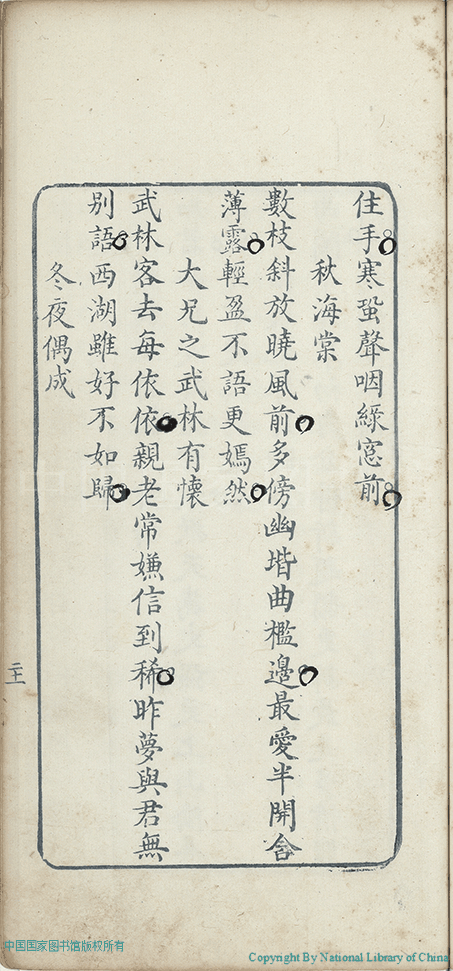 住手寒蛩聲咽綠窓前
秋海棠
數枝斜放曉風前多傍幽堦曲檻邊最愛半開含
薄露輕盈不語更嫣然
大兄之武林有懷
武林客去每依依親老常嫌信到稀昨夢與君無
別語西湖雖好不如歸
冬夜偶成
二十一
中国国家图书馆版权所有
Copyright By National Library of China